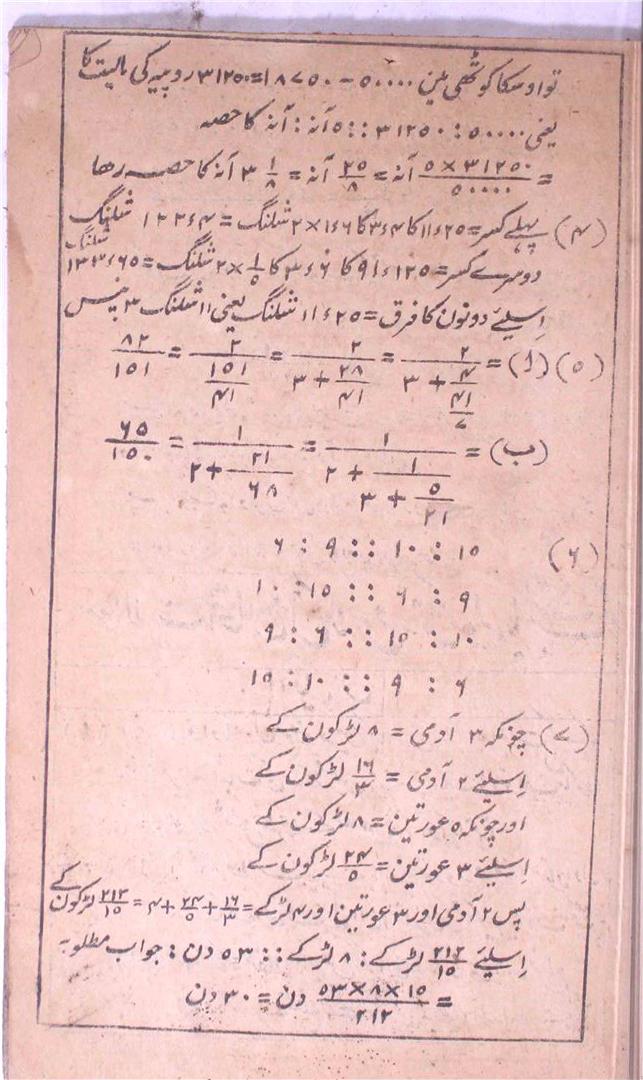 تو اوسکا کوٹھی مین ۵۰۰۰۰ - ۱۸۷۵۰ = ۳۱۲۵۰ روپیہ کی مالیت کا
یعنی ۵۰۰۰۰ : ۳۱۲۵۰ :: ۵ آنہ : آنہ کا حصہ
= ۵ × ۳۱۲۵۰ / ۵۰۰۰۰ آنہ = ۲۵/۸ آنہ = ۳ ۱/۸ آنہ کا حصہ رھا
(۴) پہلے کسر = ۱۱۶۲۵ کا ۳۶۴ کا ۱۶۶ × ۲ شلنگ = ۱۲۲۶۴ شلنگ
دوسرے کسر = ۹۱۶۱۲۵ کا ۶ کا ۳ ۱/۵ × ۲ شلنگ = ۱۳۳۶۶۵ شلنگ
اِسلیئے دونون کا فرق = ۱۱۶۲۵ شلنگ یعنی ۱۱ شلنگ ۳ پنس
(۵) (ا) = ۲ / ۳ + ۴ / ۴۱/۷ = ۲ / ۳ + ۲۸/۴۱ = ۲ / ۱۵۱/۴۱ = ۸۲/۱۵۱
(ب) = ۱ / ۲ + ۱ / ۳ + ۵/۲۱ = ۱ / ۲ + ۲۱/۶۸ = ۶۵/۱۵۰
(۶) ۱۵ : ۱۰ :: ۹ : ۶
۹ : ۶ :: ۱۵ : ۱۰
۱۰ : ۱۵ :: ۶ : ۹
۶ : ۹ :: ۱۰ : ۱۵
(۷) چونکہ ۳ آدمی = ۸ لڑکون کے
اِسلیئے ۲ آدمی = ۱۶/۳ لڑکون کے
اور چونکہ ۵ عورتین = ۸ لڑکون کے
اِسلیئے ۳ عورتین = ۲۴/۵ لڑکون کے
پس ۲ آدمی اور ۳ عورتین اور ۴ لڑکے = ۱۶/۳ + ۲۴/۵ + ۴ = ۲۱۲/۱۵ لڑکون کے
اِسلیئے ۲۱۲/۱۵ لڑکے : ۸ لڑکے :: ۵۳ دن : جواب مطلوبہ
= ۵۳ × ۸ × ۱۵ / ۲۱۲ دن = ۳۰ دن